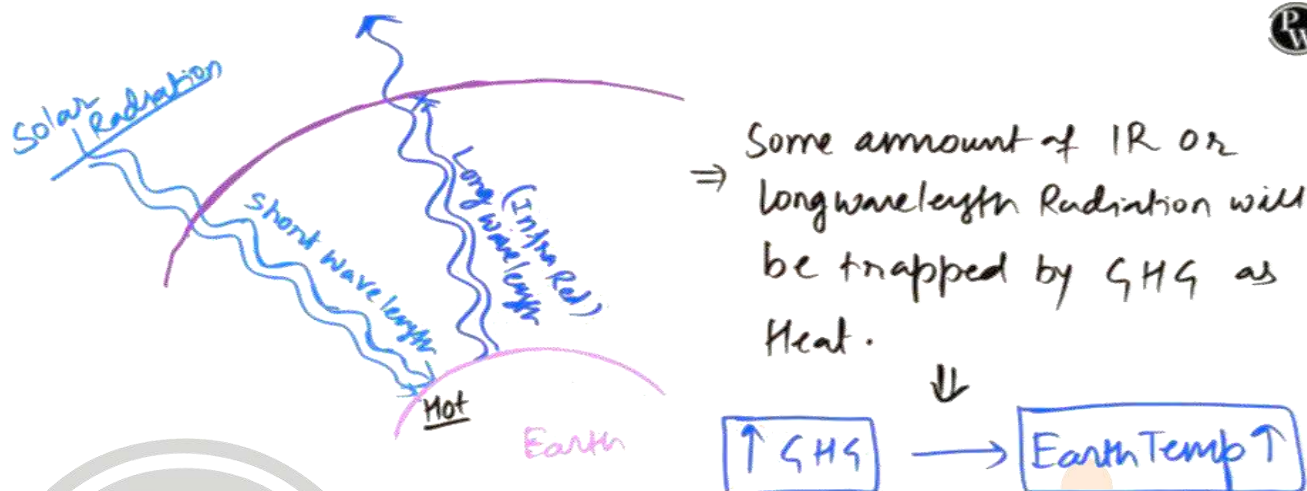 Solar
Radiation
Short wavelength
Long
wavelength
(Infra Red)
Hot
Earth
PW
⇒ Some ammount of IR or
Longwavelength Radiation will
be trapped by GHG as
Heat.
⇓
↑ GHG → Earth Temp ↑